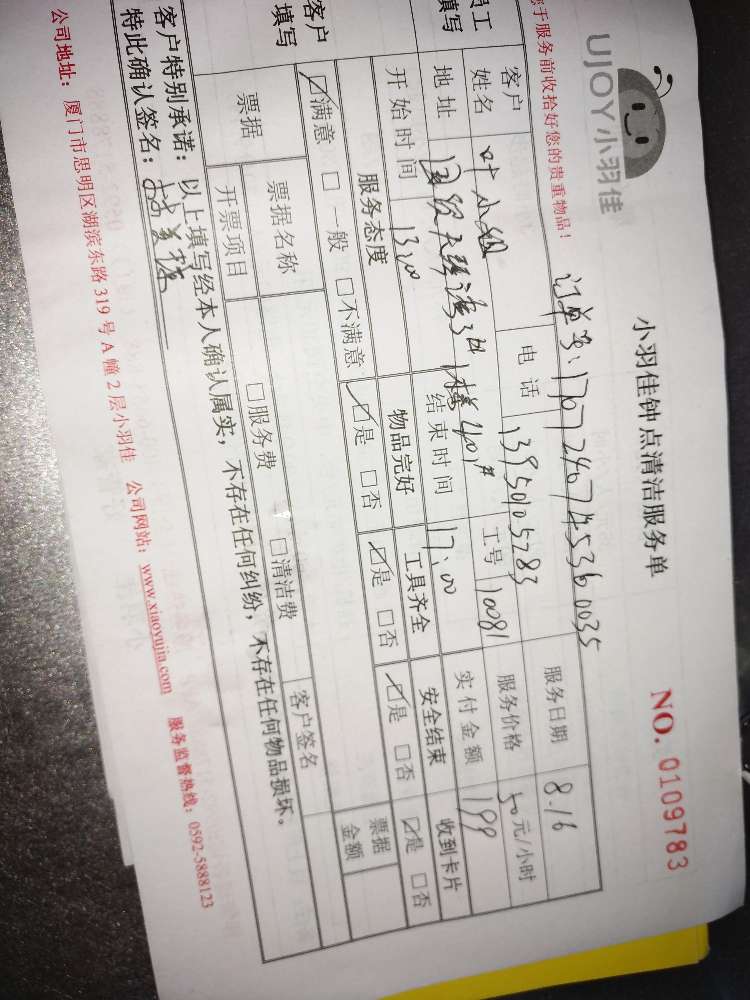 UJOY小羽佳
小羽佳钟点清洁服务单
NO. 0109783
您于服务前收拾好您的贵重物品！
订单号:1707246745360035
员工填写
客户姓名 叶小姐 电话 13950105283 服务日期 8.16
地址 3# 楼401# 工号 10081 服务价格 50元/小时
开始时间 13:00 结束时间 17:00 实付金额 199
客户填写
服务态度 物品完好 工具齐全 安全结束 收到卡片
☑满意 □一般 □不满意 ☑是 □否 ☑是 □否 ☑是 □否 ☑是 □否
票据 票据名称 □服务费 □清洁费 客户签名 票据金额
开票项目
客户特别承诺：以上填写经本人确认属实，不存在任何纠纷，不存在任何物品损坏。
特此确认签名：
公司地址：厦门市思明区湖滨东路319号A幢2层小羽佳 公司网站：www.xiaoyujia.com 服务监督热线：0592-5888123